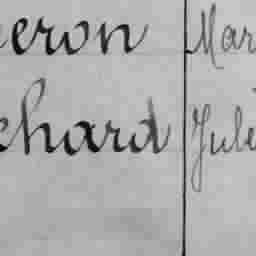 eron Mar
chard Juli